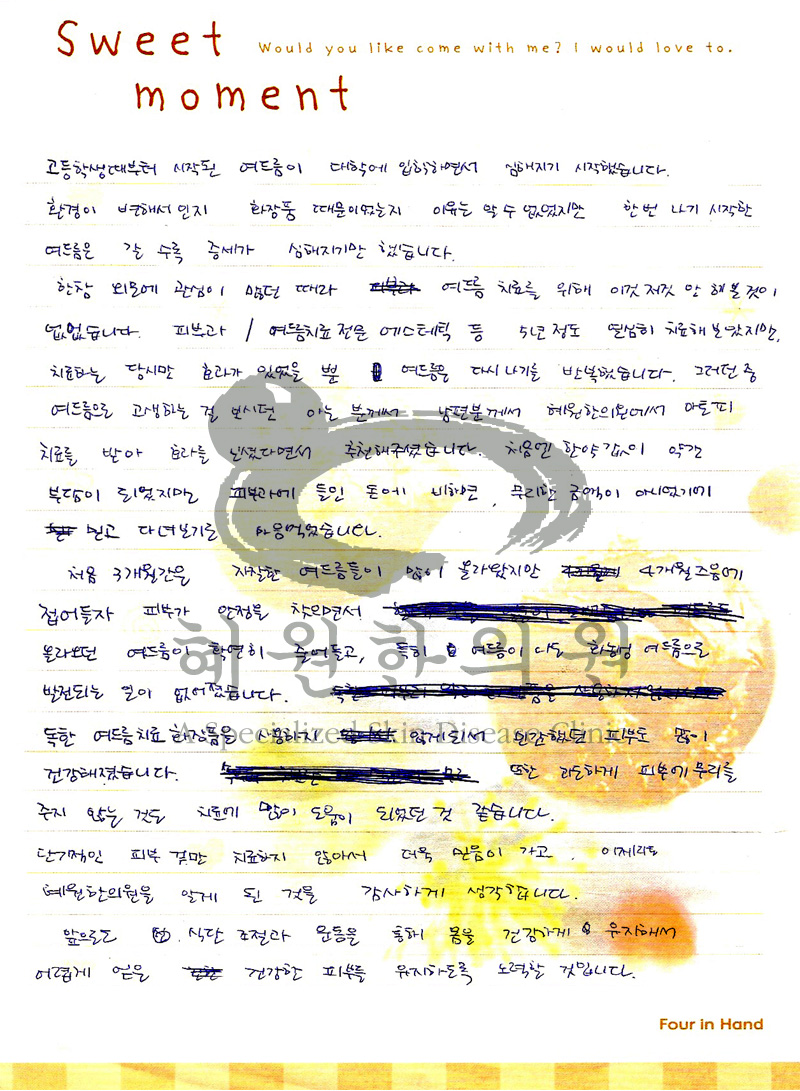 Sweet
Would you like come with me? I would love to.
moment
고등학생때부터 시작된 여드름이 대학에 입학하면서 심해지기 시작했습니다.
환경이 변해서인지 화장품 때문이었는지 이유는 알 수 없었지만 한번 나기 시작한
여드름은 갈 수록 증세가 심해지기만 했습니다.
한창 외모에 관심이 많던 때라 여드름 치료를 위해 이것저것 안 해본 것이
없었습니다. 피부과 / 여드름치료 전문 에스테틱 등 5년 정도 열심히 치료해 보았지만,
치료하는 당시만 효과가 있었을 뿐 여드름은 다시 나기를 반복했습니다. 그러던 중
여드름으로 고생하는 걸 보시던 아는 분께서 남편분께서 혜원한의원에서 아토피
치료를 받아 효과를 보셨다면서 추천해주셨습니다. 처음엔 한약값이 약간
부담이 되었지만 피부과에 들인 돈에 비하면, 무리한 금액이 아니었기에
믿고 다녀보기를 마음먹었습니다.
처음 3개월간은 자잘한 여드름들이 많이 올라왔지만 4개월즈음에
접어들자 피부가 안정을 찾으면서
올라오던 여드름이 확연히 줄어들고, 특히 여드름이 나도 화농성 여드름으로
발전되는 일이 없어졌습니다.
독한 여드름치료 화장품을 사용하지 않게되어 민감했던 피부도 많이
건강해졌습니다. 또한 과도하게 피부에 무리를
주지 않는 것도 치료에 많이 도움이 되었던 것 같습니다.
단기적인 피부 겉만 치료하지 않아서 더욱 믿음이 가고, 이제라도
혜원한의원을 알게 된 것을 감사하게 생각합니다.
앞으로도 식단 조절과 운동을 통해 몸을 건강하게 유지해서
어렵게 얻은 건강한 피부를 유지하도록 노력할 것입니다.
혜원한의원
A Specialized Skin Disease Clinic
Four in Hand